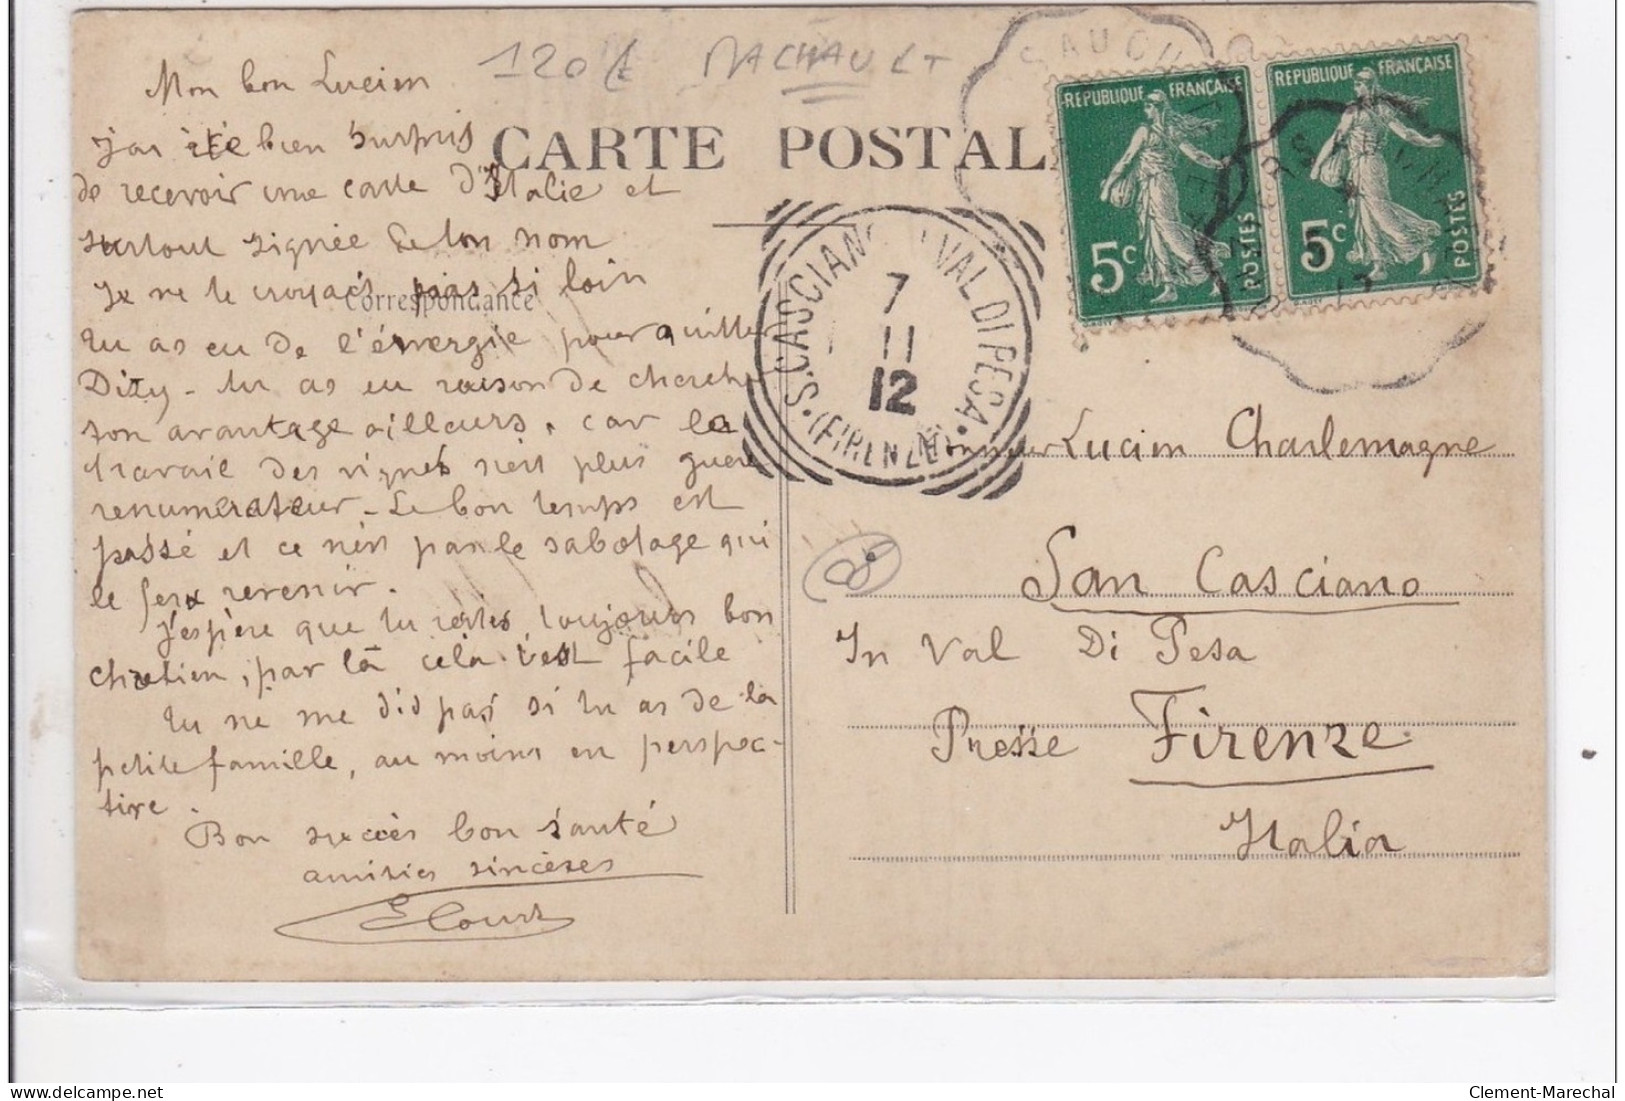 120 €
MACHAULT
CARTE POSTAL
Correspondance
Mon bon Lucien
j'ai été bien surpris
de recevoir une carte d'Italie et
surtout signée de ton nom
Je ne te croyais pas si loin
tu as eu de l'énergie pour quitter
Dizy - tu as eu raison de chercher
son avantage ailleurs, car le
travail des vignes n'est plus guère
renumerateur - Le bon temps est
passé et ce n'est pas le sabotage qui
le fera revenir.
J'espère que tu restes toujours bon
chretien, par là cela t'est facile
tu ne me dis pas si tu as de la
petite famille, au moins en perspec-
tive.
Bon succès bon santé
amitiés sincères
RÉPUBLIQUE FRANÇAISE
5c
POSTES
RÉPUBLIQUE FRANÇAISE
5c
POSTES
S. CASCIANO VAL DI PESA
(FIRENZE)
7
11
12
Monsieur Lucien Charlemagne
San Casciano
In Val Di Pesa
Presse Firenze
Italia
Clement-Marechal